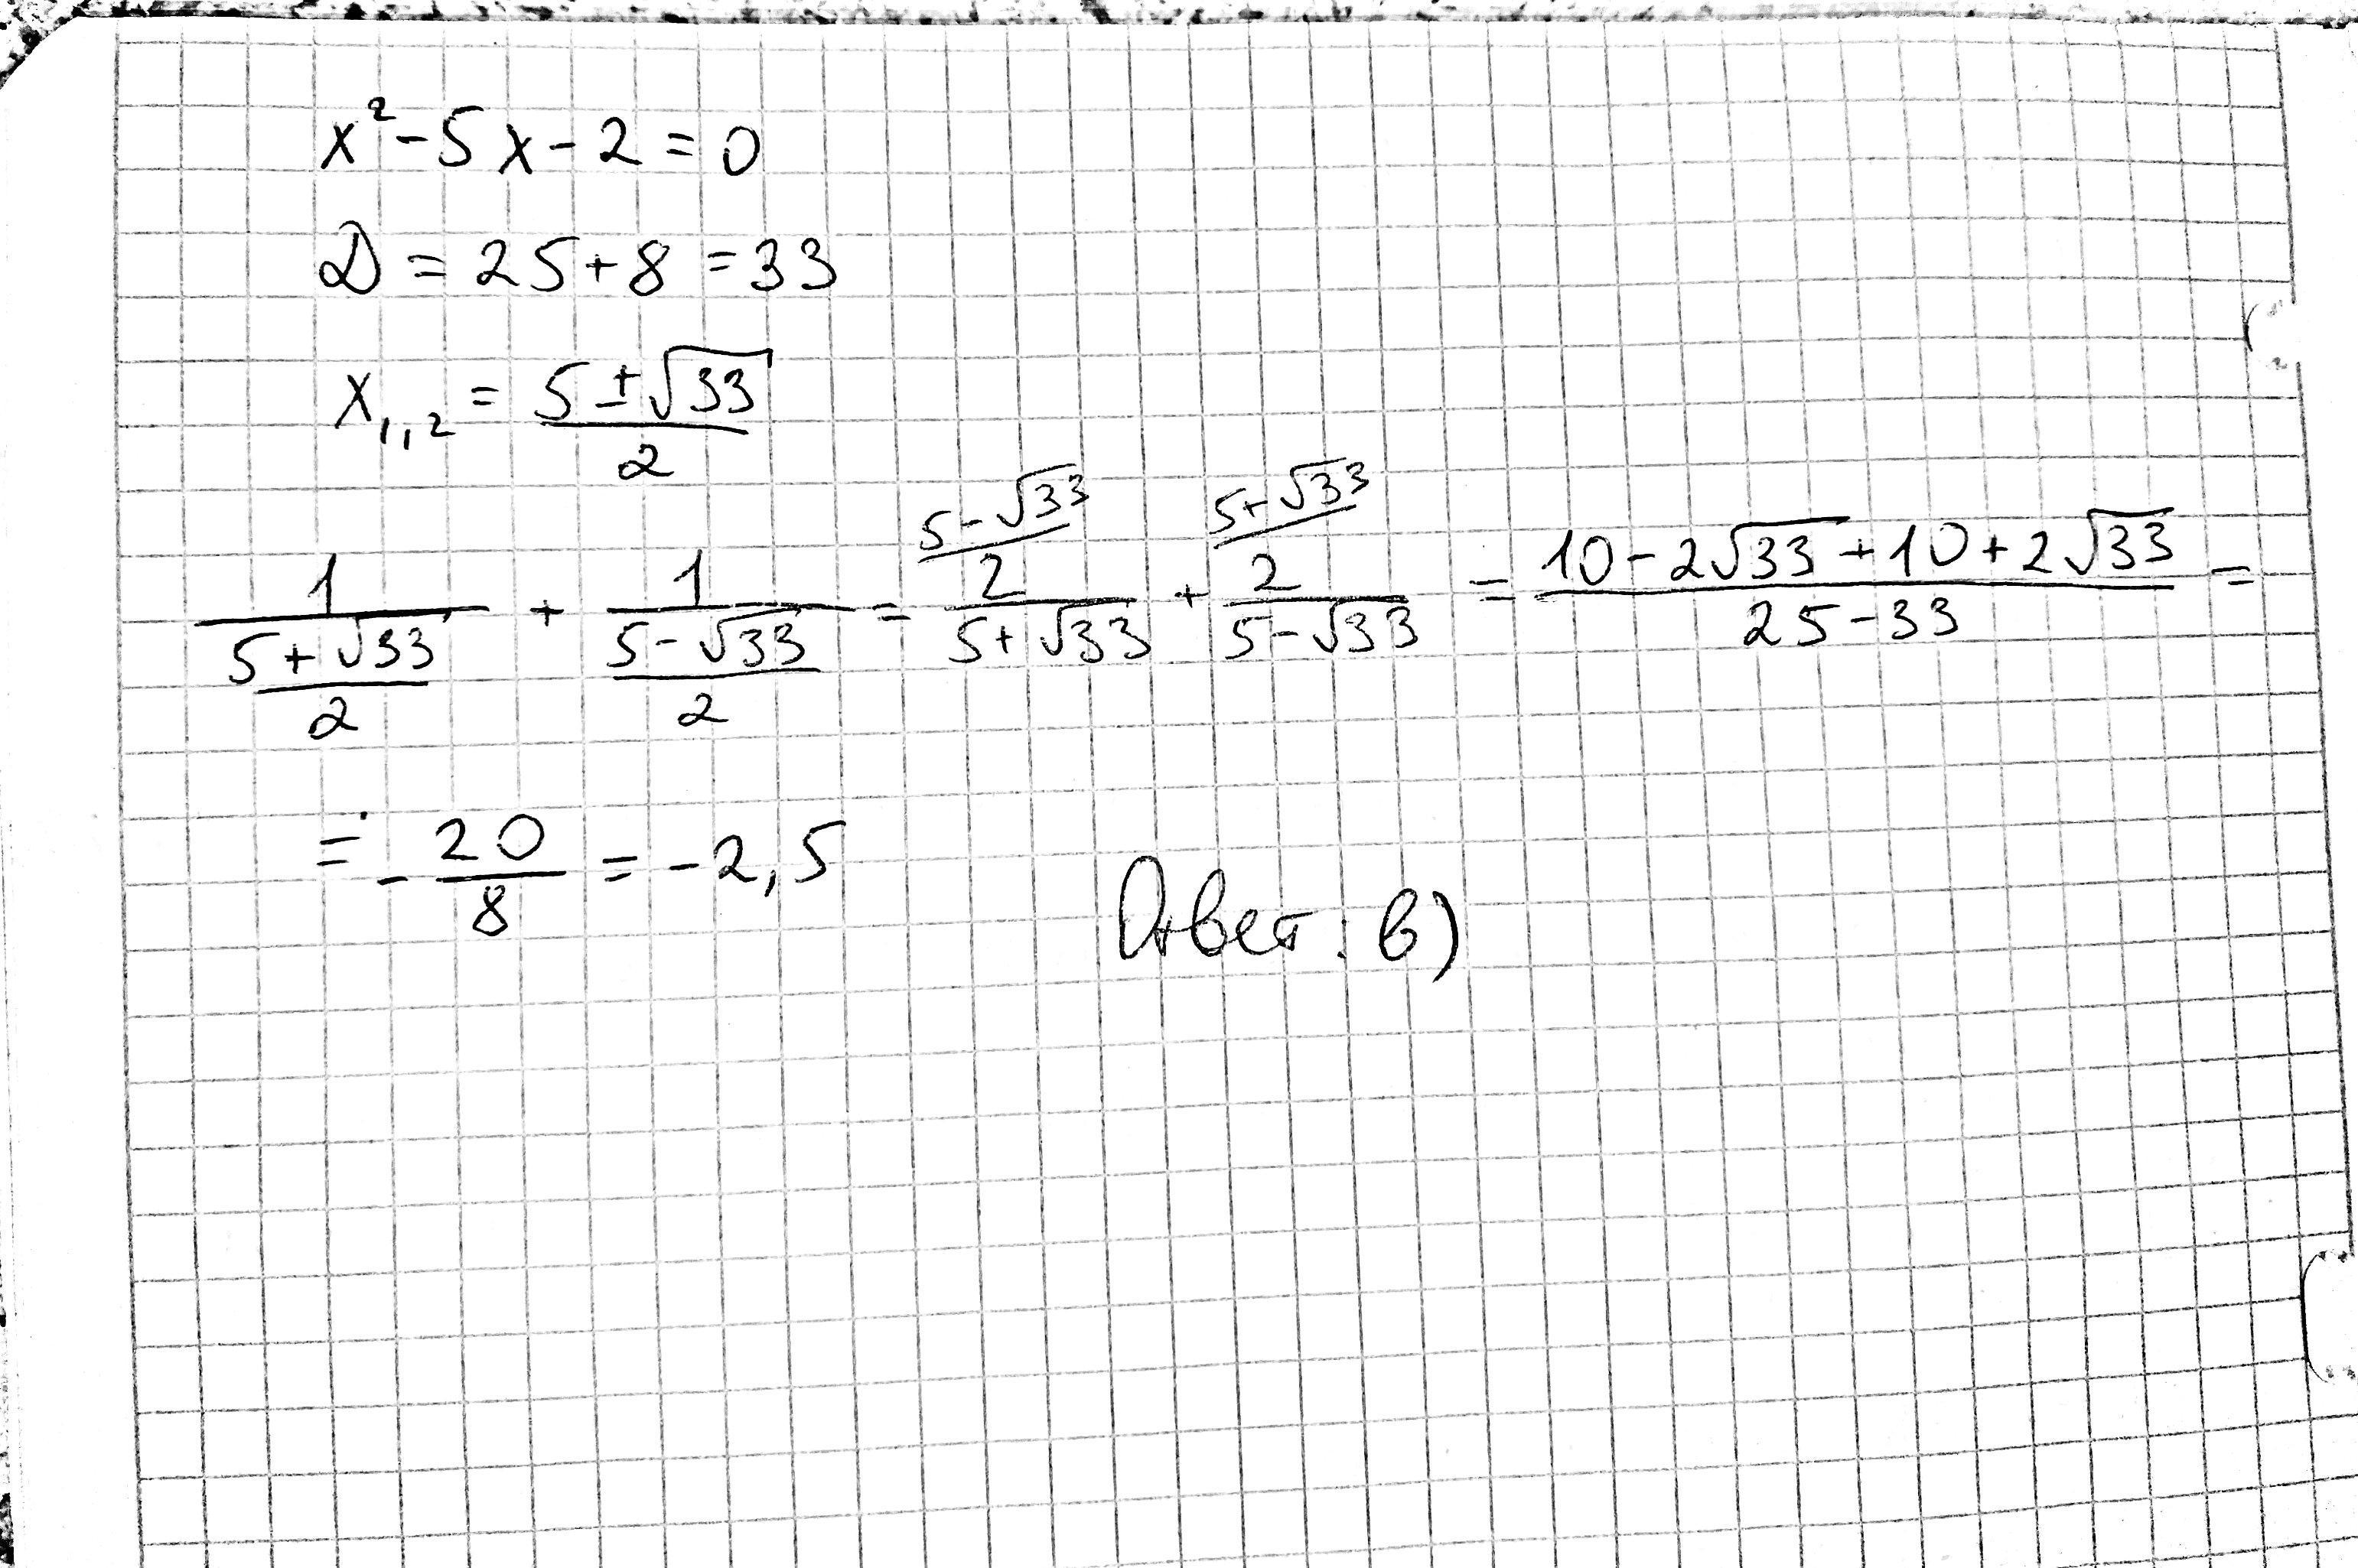 x² - 5x - 2 = 0
D = 25 + 8 = 33
x₁,₂ = (5 ± √33)/2
1/((5 + √33)/2) + 1/((5 - √33)/2) = (5 - √33/ 2/(5 + √33) + (5 + √33/ 2/(5 - √33) = (10 - 2√33 + 10 + 2√33)/(25 - 33) =
= - 20/8 = -2,5
Ответ: в)